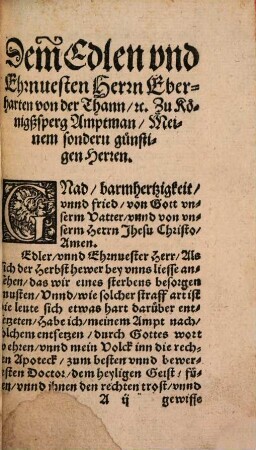 Dem̃ Edlen vnd
Ehrnuesten Herrn Eber-
harten von der Thann/ ꝛc. Zu Kö-
nigßsperg Amptman/ Mei-
nem sondern günsti-
gen Herren.
GNad/ barmhertzigkeit/
vnnd fried/ von Gott vn-
serm Vatter/ vnnd von vn-
serm Herrn Jhesu Christo/
Amen.
Edler/ vnnd Ehrnuester Herr/ Als
sich der Herbst hewer bey vnns liesse an-
sehen/ das wir eines sterbens besorgen
musten/ Vnnd/ wie solcher straff art ist
die leute sich etwas hart darüber ent-
setzeten/ Habe ich/ meinem Ampt nach/
solchem entsetzen/ durch Gottes wort
wehren/ vnnd mein Volck inn die rech-
ten Apoteck/ zum besten vnnd bewer-
sten Doctor/ dem heyligen Geist/ fü-
ren/ vnnd jhnen den rechten trost/ vnnd
A ij gewiss